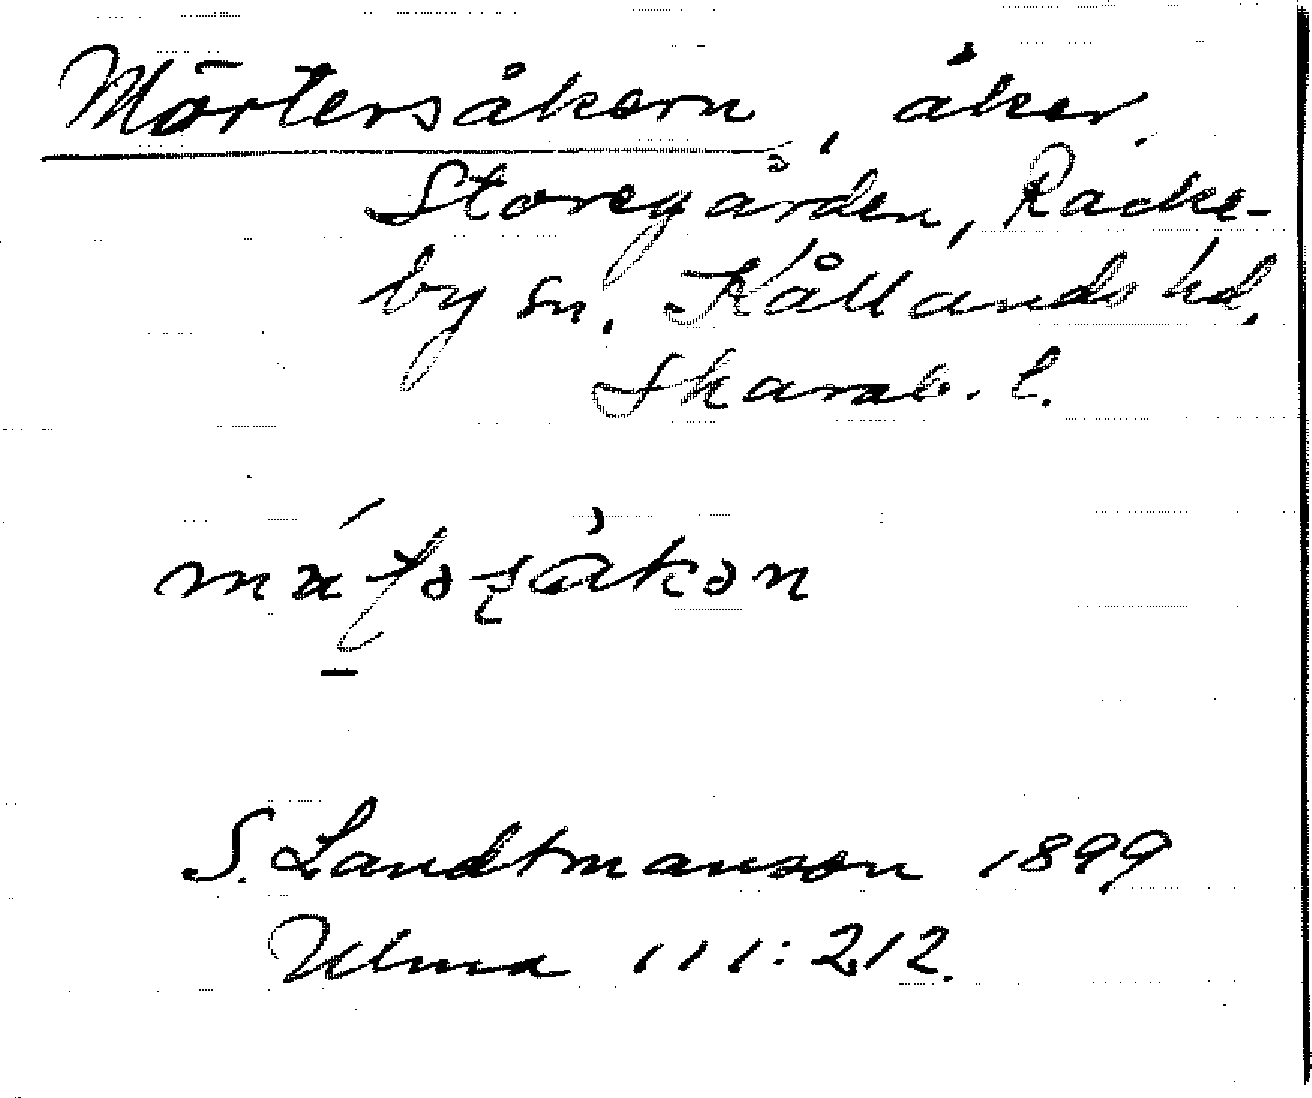 Mörtersåkern, åker
Storegården, Racke-
by sn. Kållands hd.
Skarab. l.
S. Landtmanson 1899
Ulma 111:212.